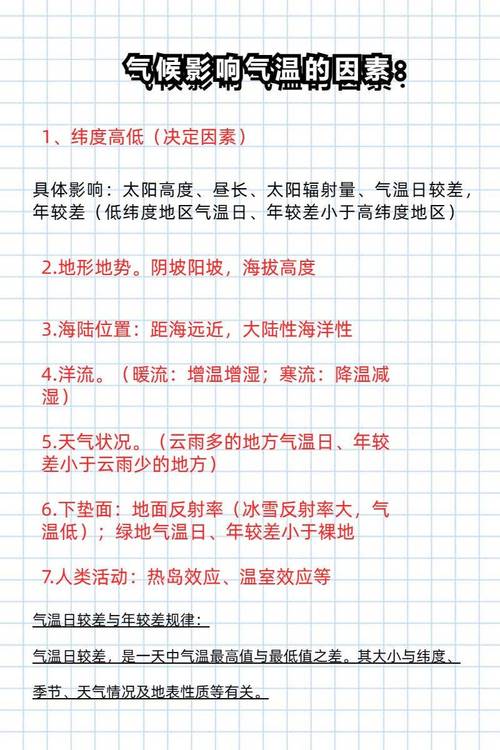 气候影响气温的因素:
1、纬度高低（决定因素）
具体影响：太阳高度、昼长、太阳辐射量、气温日较差，
年较差（低纬度地区气温日、年较差小于高纬度地区）
2.地形地势。阴坡阳坡，海拔高度
3.海陆位置：距海远近，大陆性海洋性
4.洋流。（暖流：增温增湿；寒流：降温减
湿）
5.天气状况。（云雨多的地方气温日、年较
差小于云雨少的地方）
6.下垫面：地面反射率（冰雪反射率大，气
温低）；绿地气温日、年较差小于裸地
7.人类活动：热岛效应、温室效应等
气温日较差与年较差规律：
气温日较差，是一天中气温最高值与最低值之差。其大小与纬度、
季节、天气情况及地表性质等有关。